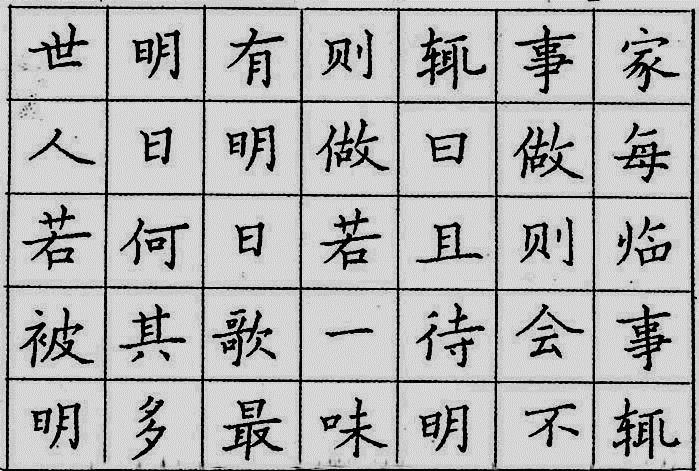 家每临事辄
事做则会不
辄曰且待明
则做若一味
有明日歌最
明日何其多
世人若被明